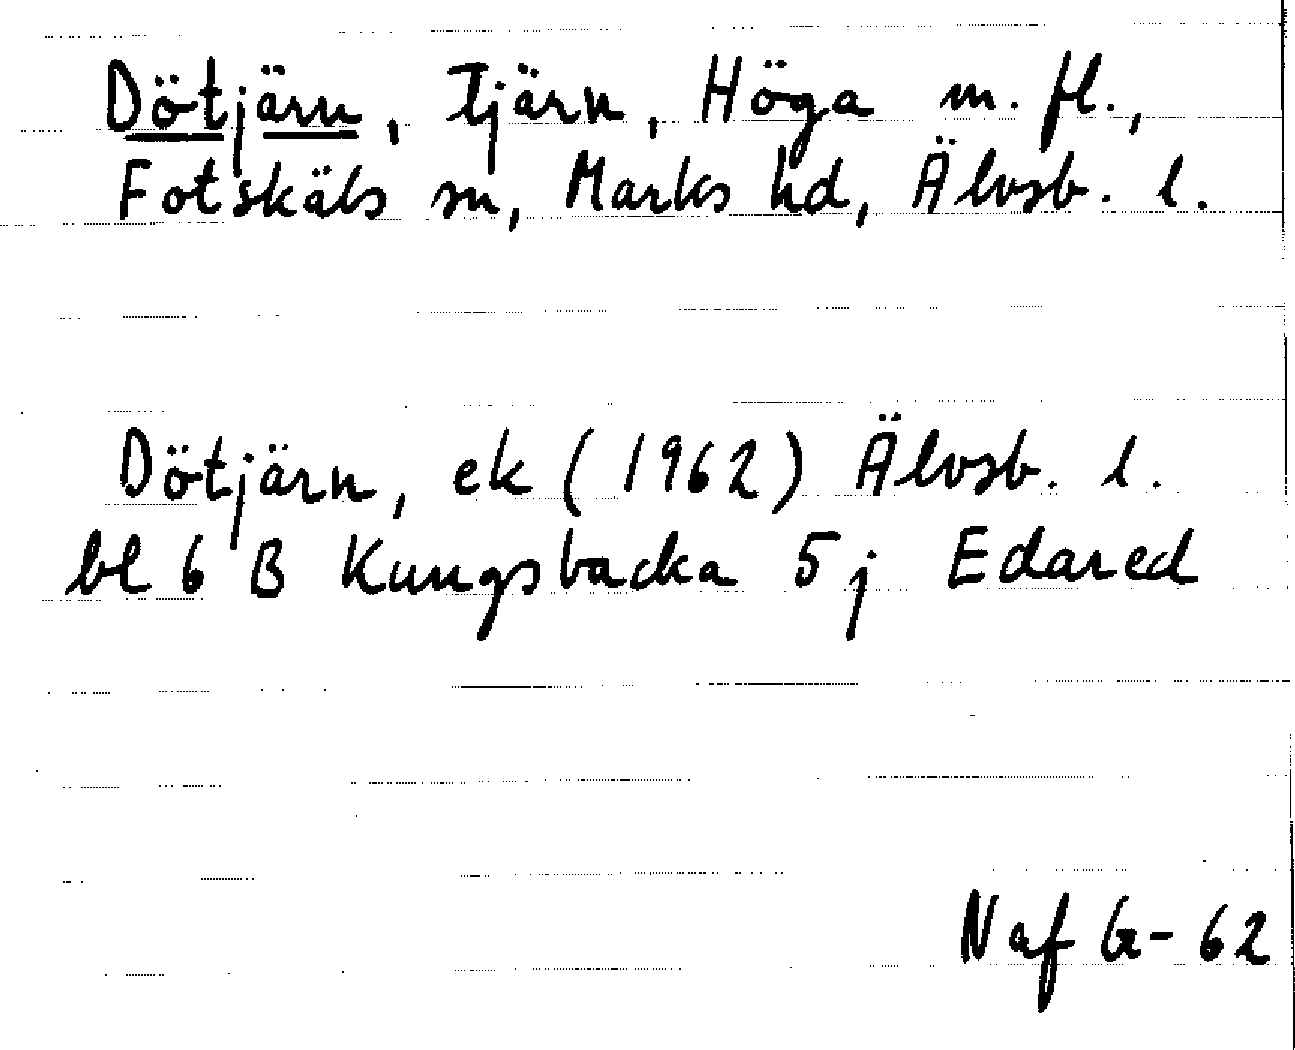 Dötjärn, Tjärn, Höga m. fl.,
Fotskäls sn, Marks hd, Älvsb. l.
Dötjärn, ek (1962) Älvsb. l.
bl 6 B Kungsbacka 5 j Edared
Naf G-62